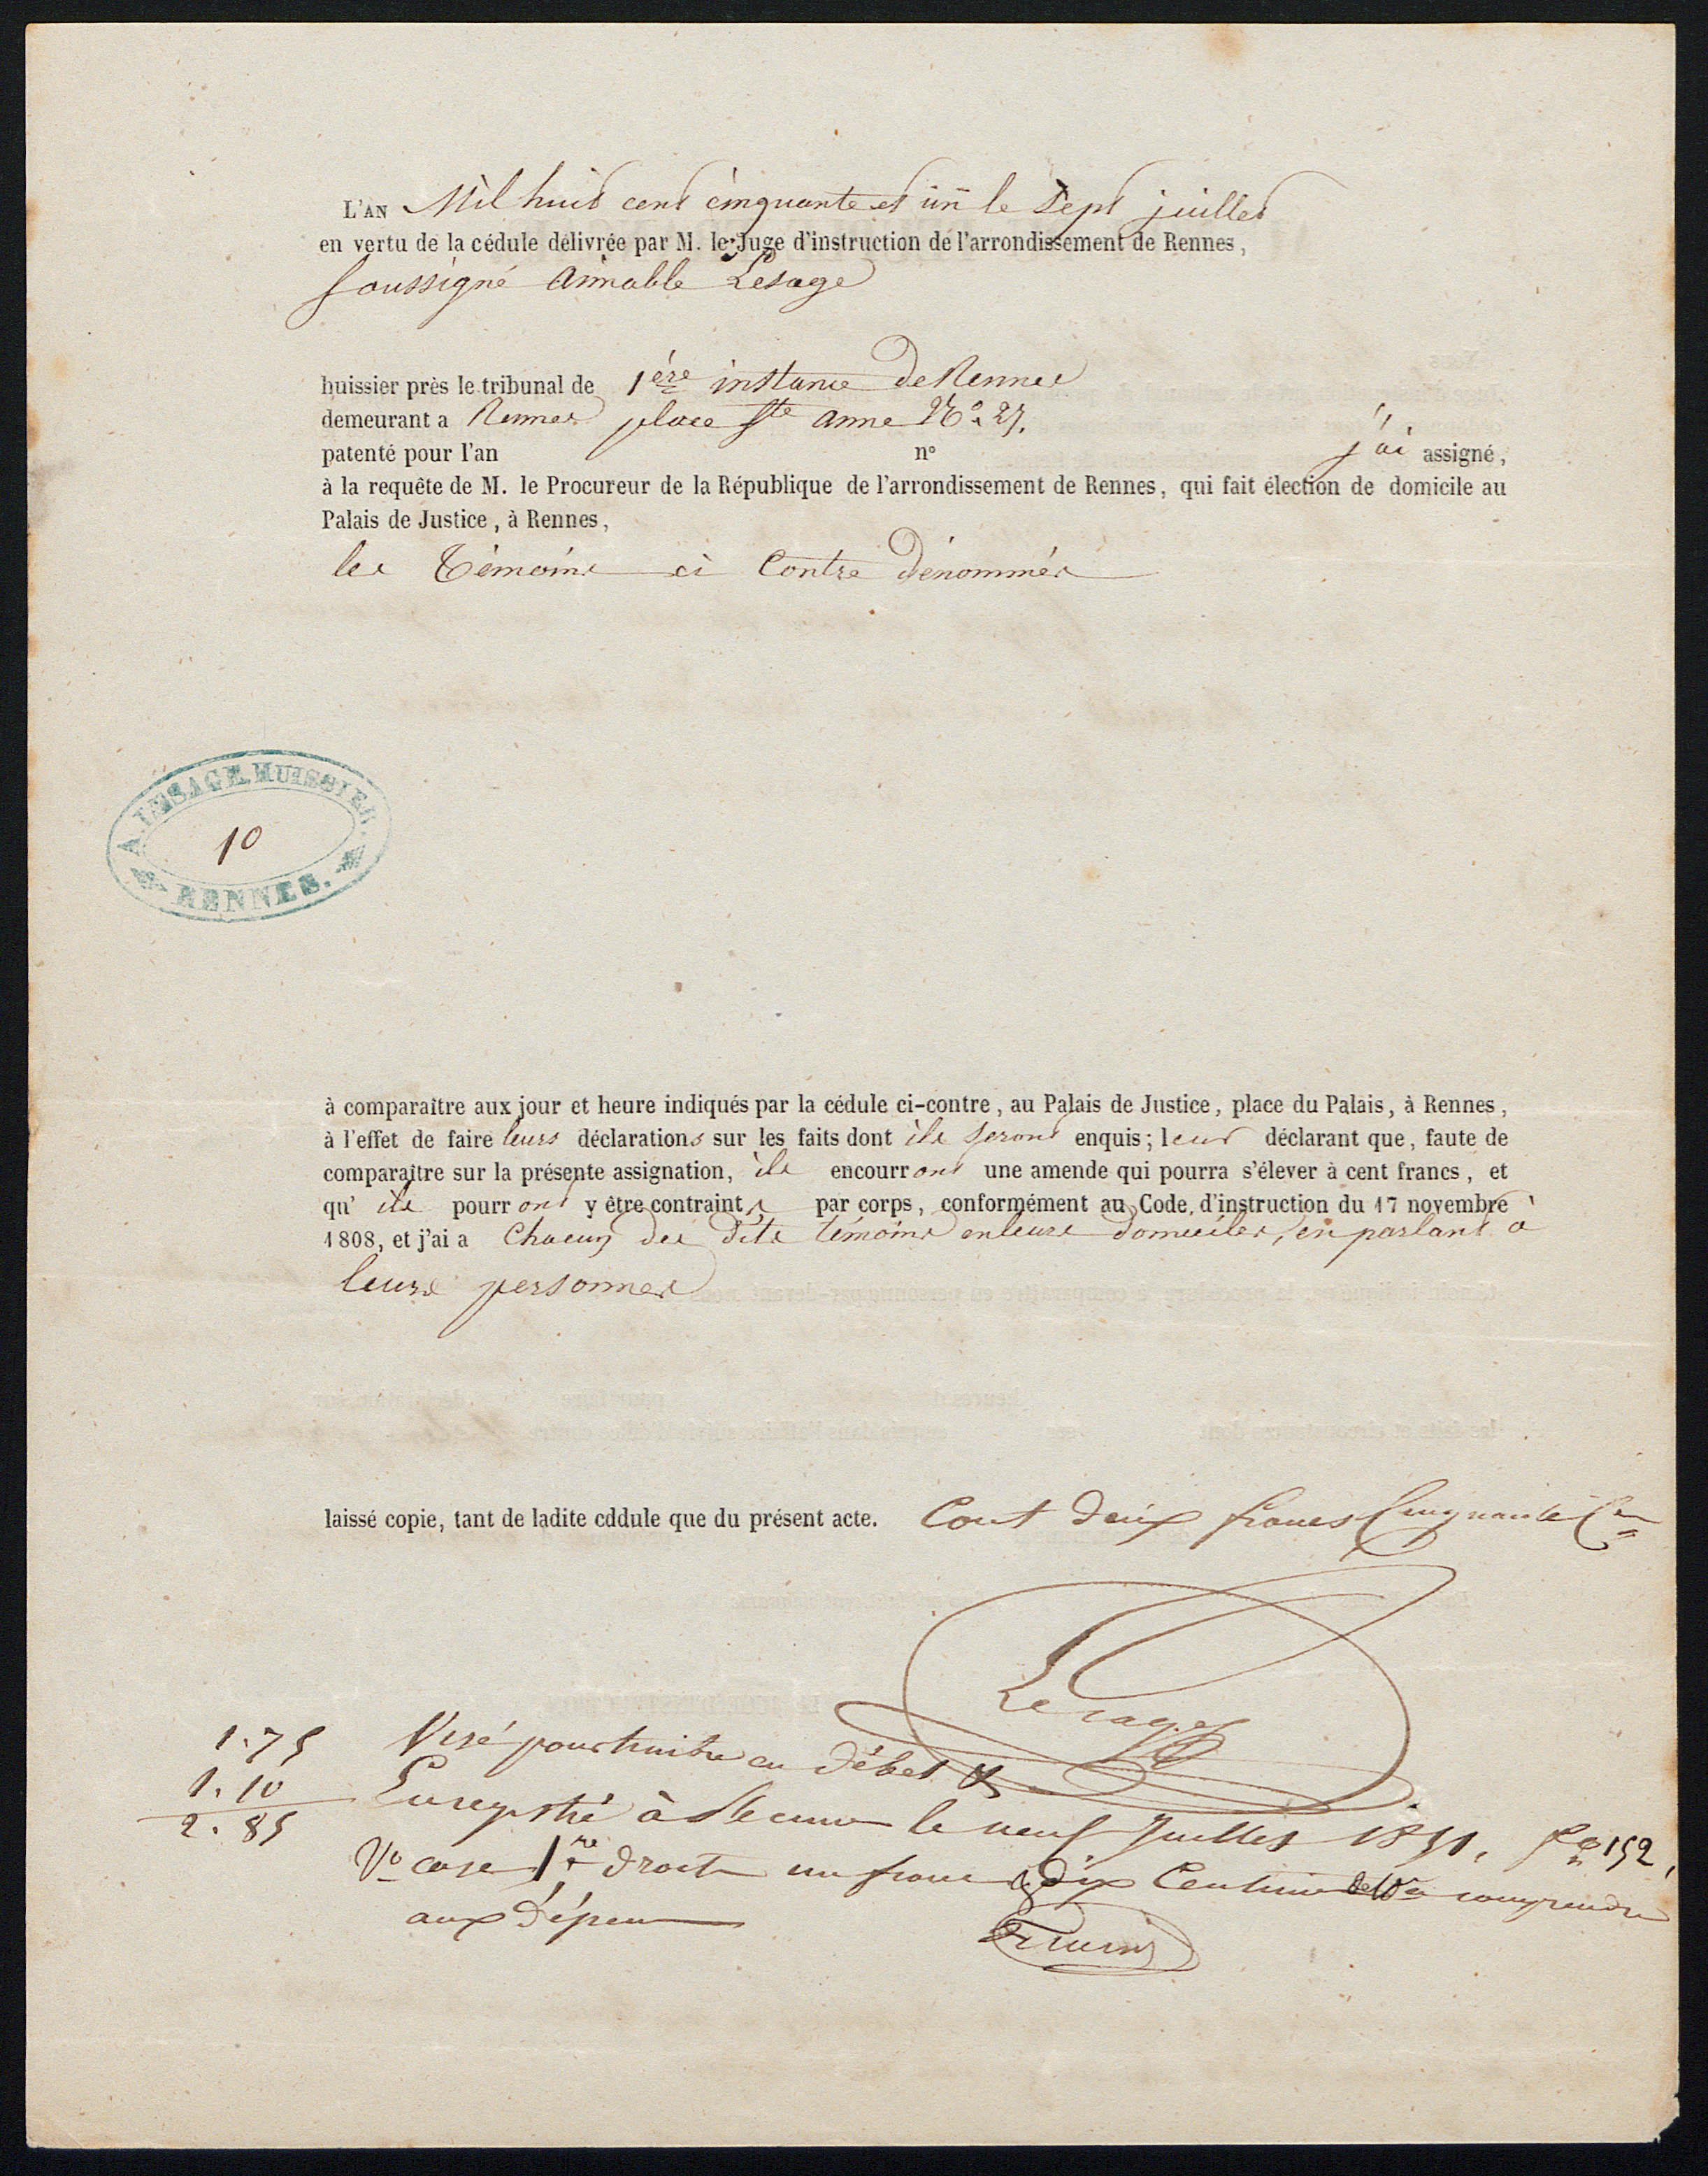 L'AN Mil huit cent cinquante et un le Sept juillet
en vertu de la cédule délivrée par M. le Juge d'instruction de l'arrondissement de Rennes,
Soussigné Aimable Lesage
huissier près le tribunal de 1ère instance De Rennes
demeurant a Rennes place Ste anne No. 27.
patenté pour l'an n° j'ai assigné,
à la requête de M. le Procureur de la République de l'arrondissement de Rennes, qui fait élection de domicile au
Palais de Justice, à Rennes,
les Témoins ci Contre Dénommés
A. LESAGE, HUISSIER.
10
RENNES.
à comparaître aux jour et heure indiqués par la cédule ci-contre, au Palais de Justice, place du Palais, à Rennes,
à l'effet de faire leurs déclarations sur les faits dont ils seront enquis; leur déclarant que, faute de
comparaître sur la présente assignation, ils encourront une amende qui pourra s'élever à cent francs, et
qu' ils pourront y être contraints par corps, conformément au Code d'instruction du 17 novembre
1808, et j'ai a Chacun des dits témoins en leurs domiciles, en parlant à
leurs personnes
laissé copie, tant de ladite cddule que du présent acte. Cout Deux francs Cinquante Cen
Lesage
1.75
1.10
2.85
Visé pour timbre en Débet &
Enregistré à Rennes le neuf Juillet 1851, fo 152,
Vo case 1re Droit un franc dix Centimes à comprendre
aux Dépens